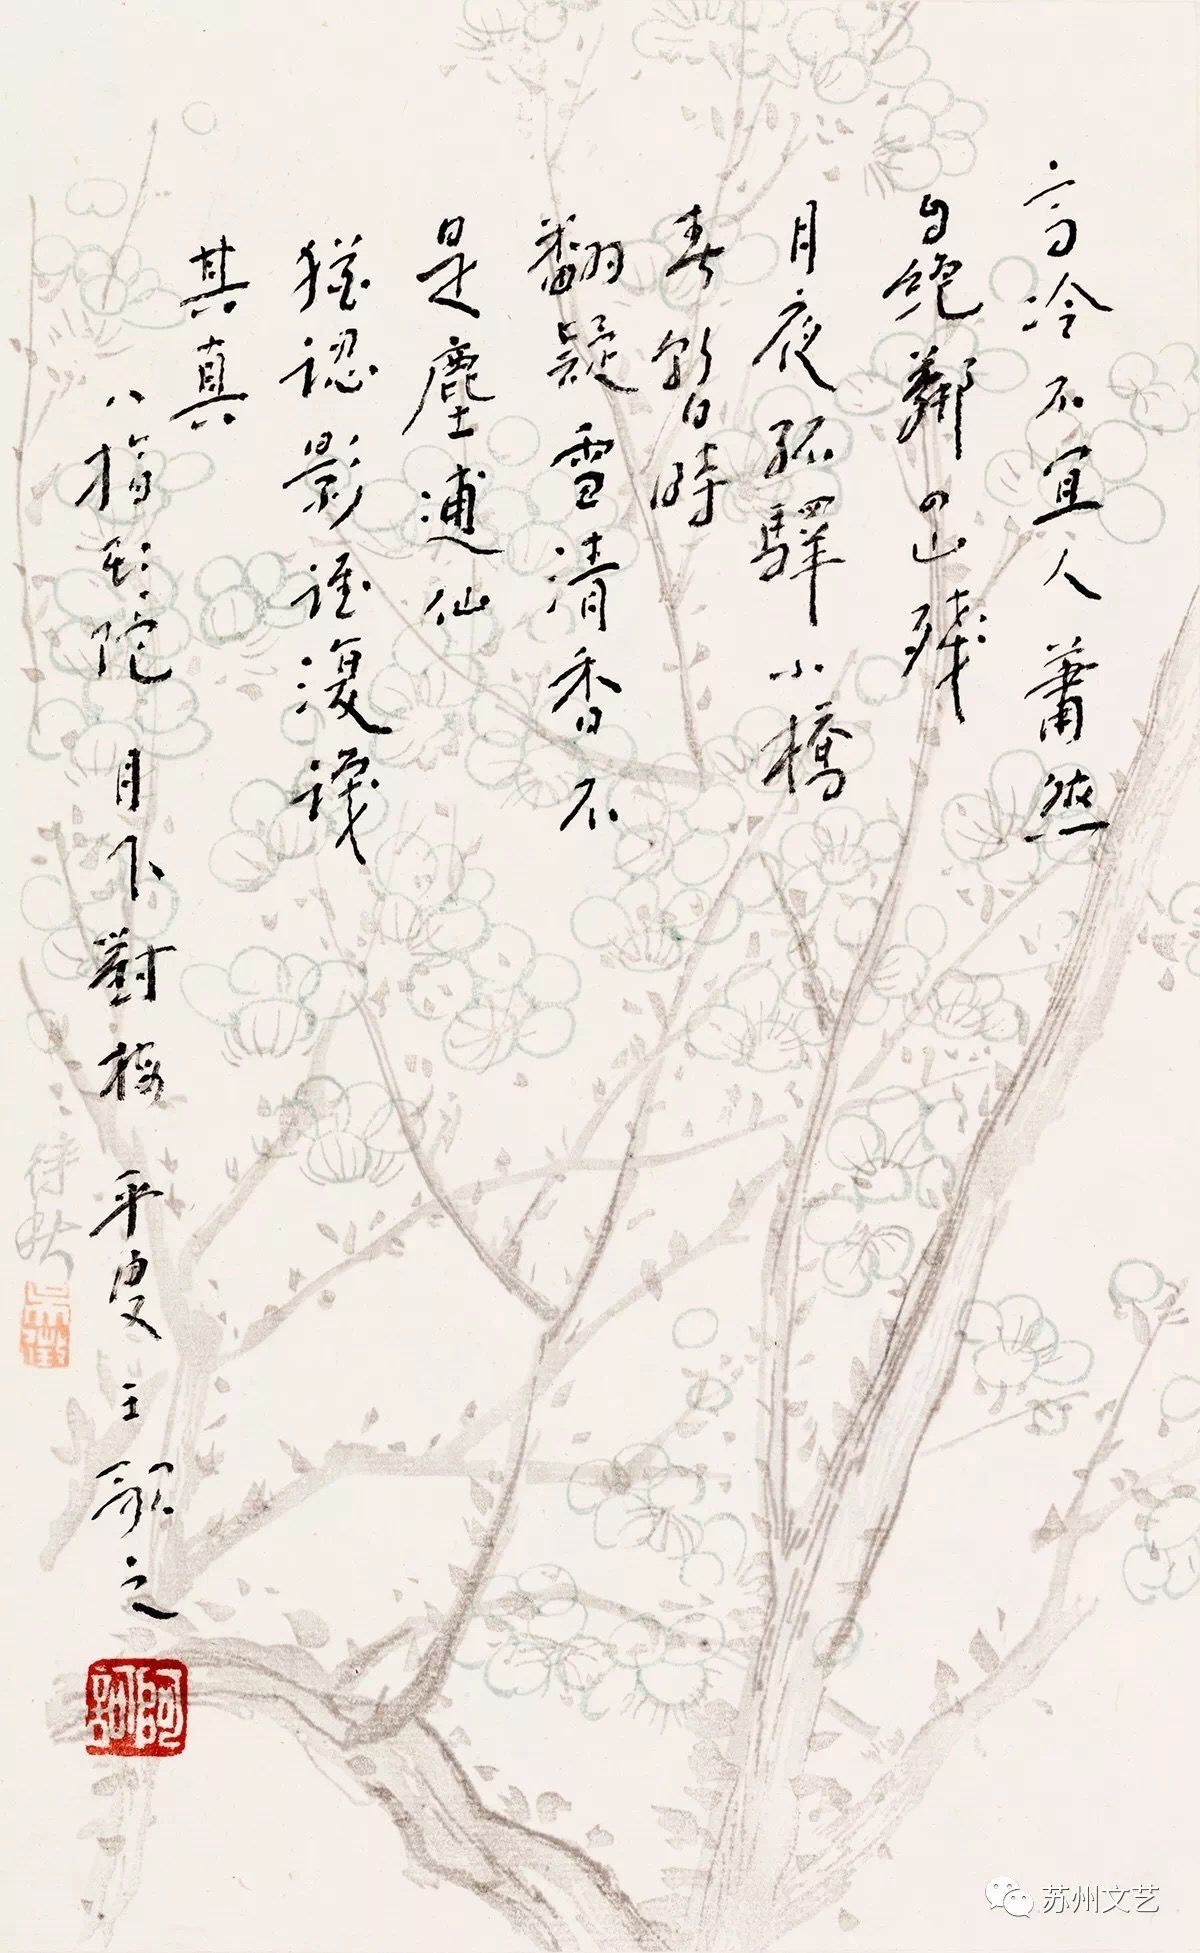 高冷不宜人蕭然
自絕鄰四山殘
月夜孤驛小橋
春暫時
翻疑雪清香不
是塵逋仙
猶認影誰復識
其真
八指頭陀月下對梅 平叟王歌之
待秋
吳徵
苏州文艺